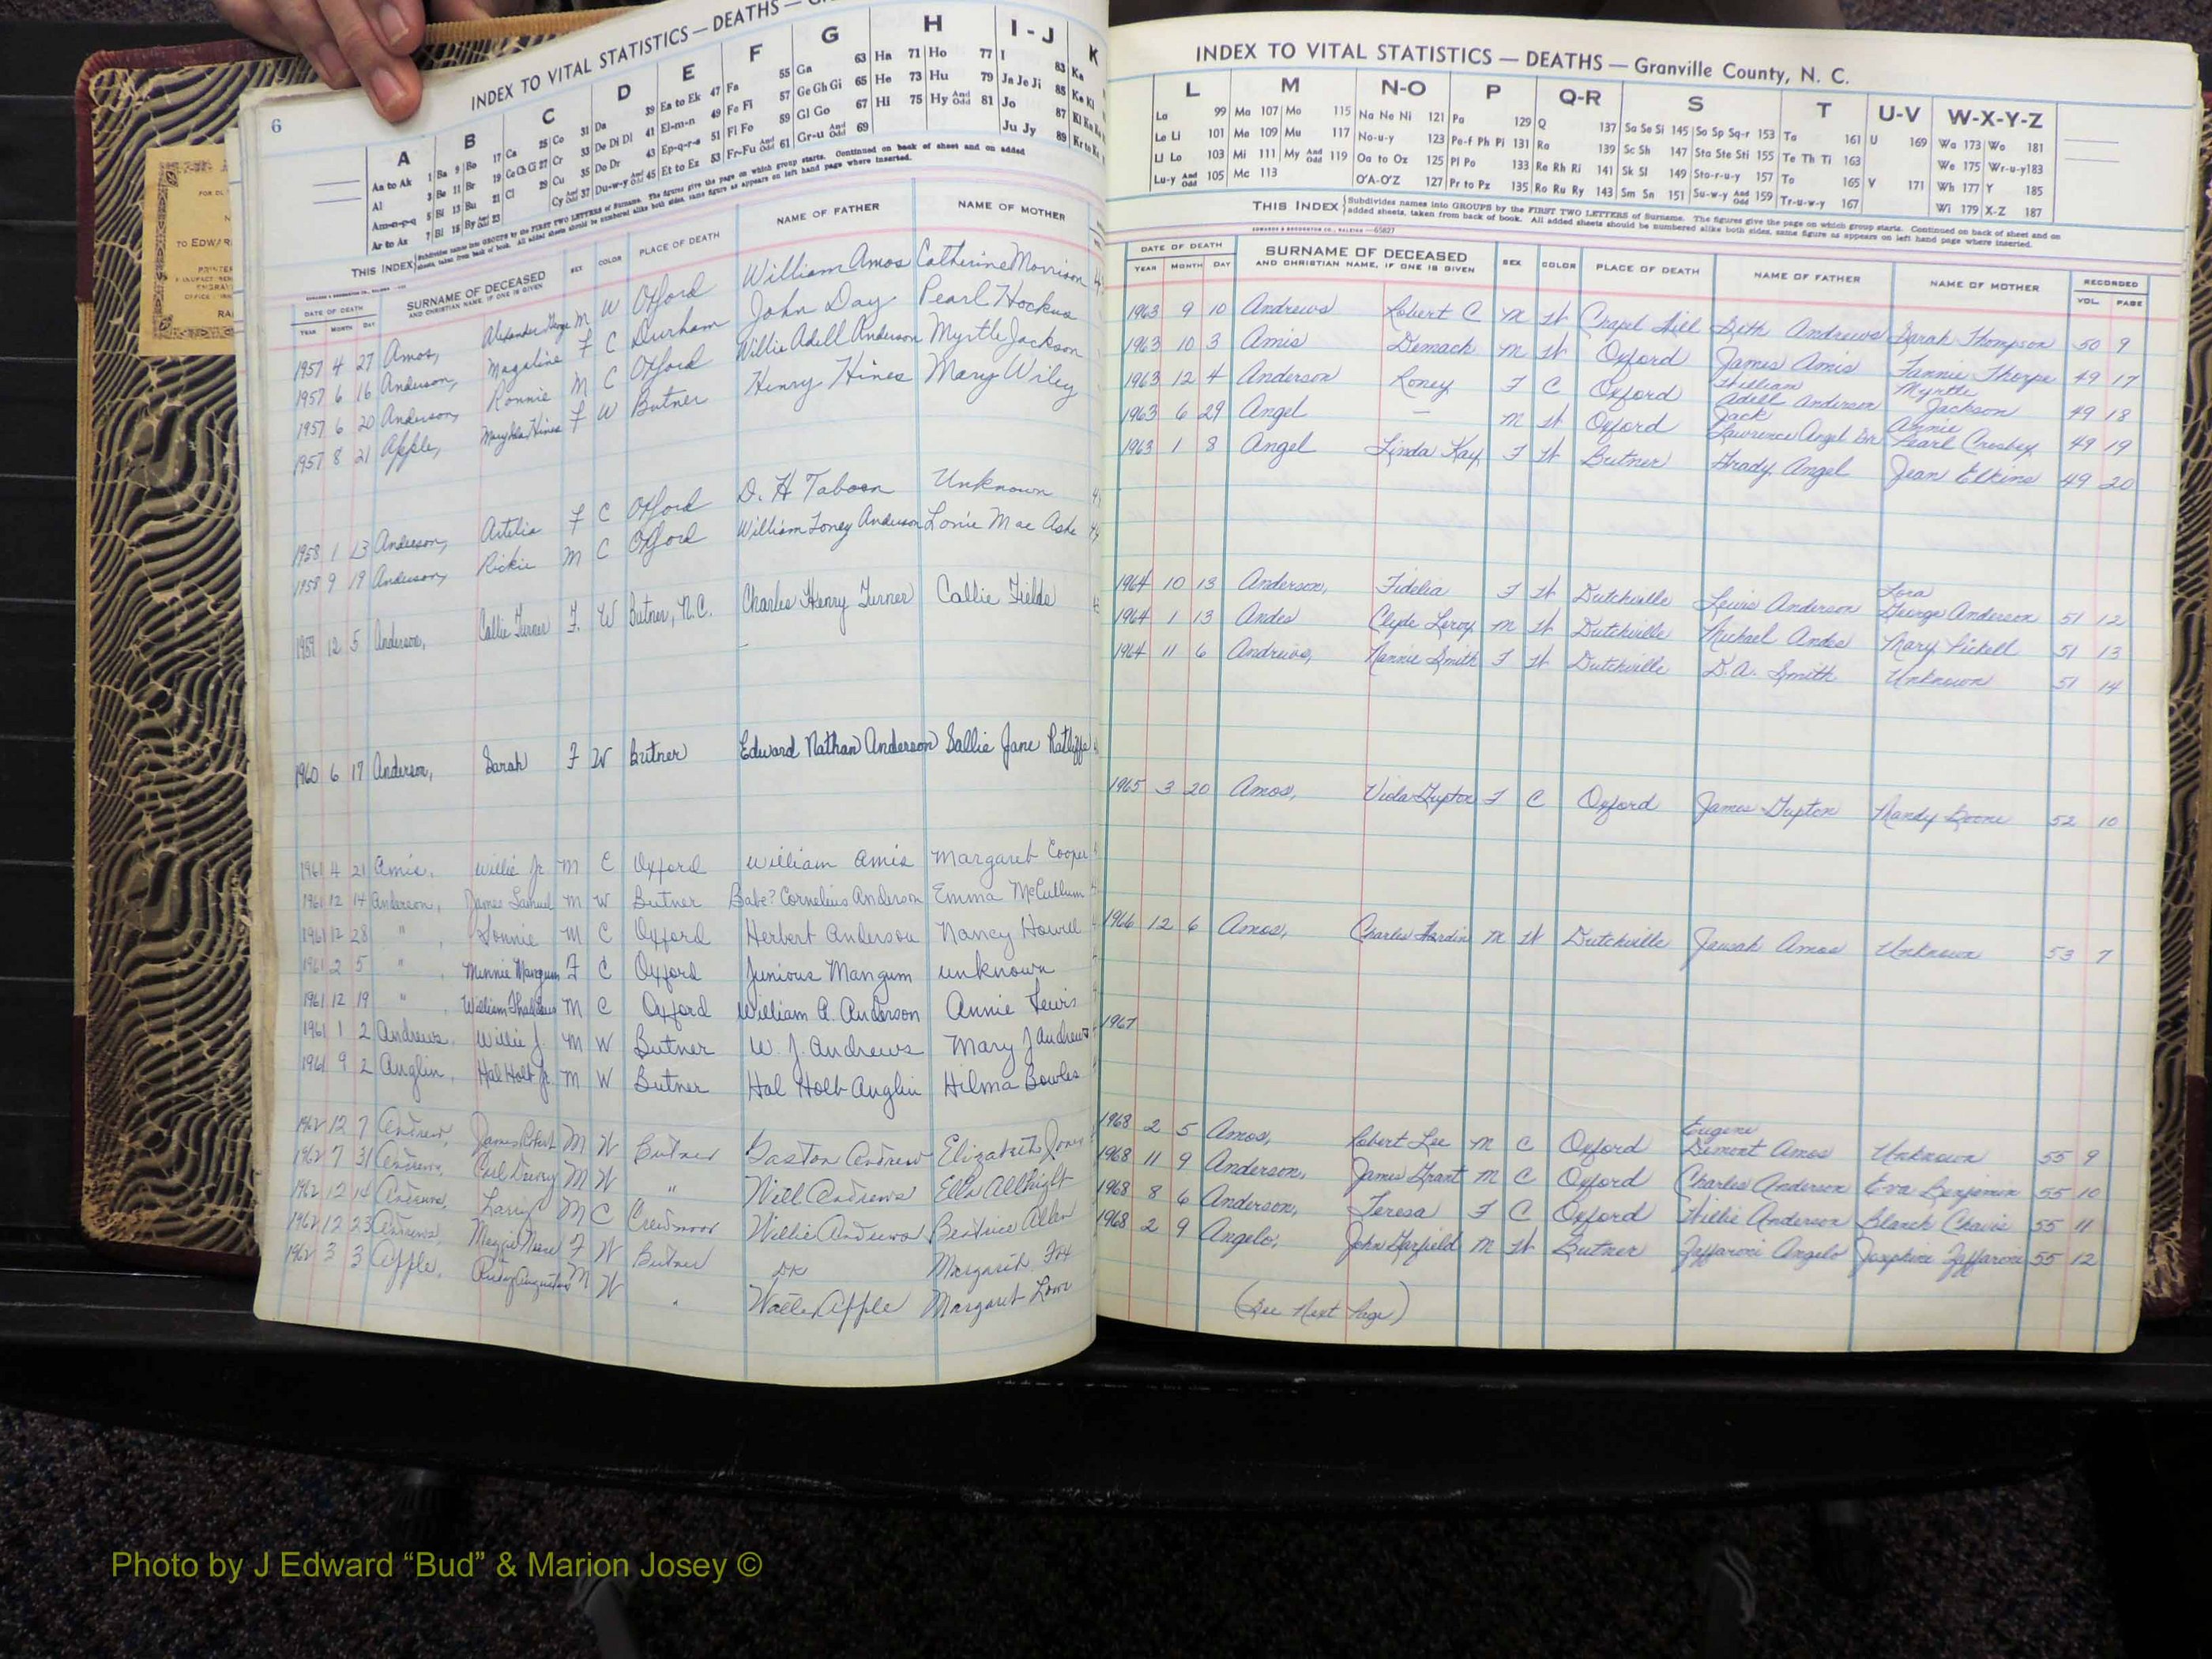 6
INDEX TO VITAL STATISTICS — DEATHS —
A B C D E F G H I - J K
Aa to Ak 1 Ba 9 Bo 17 Ca 25 Co 31 Da 39 Ea to Ek 47 Fa 55 Ga 63 Ha 71 Ho 77 I 83 Ka
Al 3 Be 11 Br 19 Ce Ch Ci 27 Cr 33 De Di Dl 41 El-m-n 49 Fe Fi 57 Ge Gh Gi 65 He 73 Hu 79 Ja Je Ji 85 Ke Kl
Am-n-p-q 5 Bi 13 Bu 21 Cl 29 Cu 35 Do Dr 43 Ep-q-r-s 51 Fl Fo 59 Gl Go 67 Hi 75 Hy And Odd 81 Jo 87
Ar to Az 7 Bl 15 By And Odd 23 Cy And Odd 37 Du-w-y And Odd 45 Et to Ez 53 Fr-Fu And Odd 61 Gr-u And Odd 69 Ju Jy 89
THIS INDEX Subdivides names into GROUPS by the FIRST TWO LETTERS of Surname. The figures give the page on which group starts. Continued on back of sheet and on added sheets, taken from back of book. All added sheets should be numbered alike both sides, same figure as appears on left hand page where inserted.
DATE OF DEATH SURNAME OF DECEASED AND CHRISTIAN NAME, IF ONE IS GIVEN SEX COLOR PLACE OF DEATH NAME OF FATHER NAME OF MOTHER
YEAR MONTH DAY
1957 4 27 Amos, Alexander George M W Oxford William Amos Catherine Morrison
1957 6 16 Anderson, Magaline F C Durham John Day Pearl Hockus
1957 6 20 Anderson, Ronnie M C Oxford Willie Adell Anderson Myrtle Jackson
1957 8 21 Apple, Mary Ida Hines F W Butner Henry Hines Mary Wiley
1958 1 13 Anderson, Artelia F C Oxford D. H Taborn Unknown
1958 9 19 Anderson, Rickie M C Oxford William Toney Anderson Lonie Mae Ashe
1959 12 5 Anderson, Callie Turner F. W Butner, N.C. Charles Henry Turner Callie Fields
1960 6 17 Anderson, Sarah F W Butner Edward Nathan Anderson Sallie Jane Ratliffe
1961 4 21 Amis, Willie Jr M C Oxford William Amis Margaret Cooper
1961 12 14 Anderson, James Samuel M W Butner Babe? Cornelius Anderson Emma McCullum
1961 12 28 " , Sonnie M C Oxford Herbert Anderson Nancy Howell
1961 2 5 " , Minnie Mangum F C Oxford Junious Mangum unknown
1961 12 19 " , William Thaddeus M C Oxford William A. Anderson Annie Lewis
1961 1 2 Andrews, Willie J. M W Butner W. J. Andrews Mary J Andrews
1961 9 2 Anglin, Hal Holt Jr. M W Butner Hal Holt Anglin Hilma Bowles
1962 12 7 Andrew, James Robert M W Butner Gaston Andrew Elizabeth Jones
1962 7 31 Andrews, Carl Dewey M W " Will Andrews Ella Allbright
1962 12 14 Andrews, Larry M C Creedmoor Willie Andrews Beatrice Allen
1962 12 23 Andrews, Maggie F W Butner DK Margaret Fox
1962 3 3 Apple, Augustus M W " Walter Apple Margaret Lowe
INDEX TO VITAL STATISTICS — DEATHS — Granville County, N. C.
L M N-O P Q-R S T U-V W-X-Y-Z
La 99 Ma 107 Mo 115 Na Ne Ni 121 Pa 129 Q 137 Sa Se Si 145 So Sp Sq-r 153 Ta 161 U 169 Wa 173 Wo 181
Le Li 101 Me 109 Mu 117 No-u-y 123 Pe-f Ph Pi 131 Ra 139 Sc Sh 147 Sta Ste Sti 155 Te Th Ti 163 We 175 Wr-u-y 183
Ll Lo 103 Mi 111 My And Odd 119 Oa to Oz 125 Pl Po 133 Re Rh Ri 141 Sk Sl 149 Sto-r-u-y 157 To 165 V 171 Wh 177 Y 185
Lu-y And Odd 105 Mc 113 O'A-O'Z 127 Pr to Pz 135 Ro Ru Ry 143 Sm Sn 151 Su-w-y And Odd 159 Tr-u-w-y 167 Wi 179 X-Z 187
THIS INDEX Subdivides names into GROUPS by the FIRST TWO LETTERS of Surname. The figures give the page on which group starts. Continued on back of sheet and on added sheets, taken from back of book. All added sheets should be numbered alike both sides, same figure as appears on left hand page where inserted.
EDWARDS & BROUGHTON CO., RALEIGH —65827
DATE OF DEATH SURNAME OF DECEASED AND CHRISTIAN NAME, IF ONE IS GIVEN SEX COLOR PLACE OF DEATH NAME OF FATHER NAME OF MOTHER RECORDED
YEAR MONTH DAY VOL. PAGE
1963 9 10 Andrews Robert C M W Chapel Hill Seth Andrews Sarah Thompson 50 9
1963 10 3 Amis Demack M W Oxford James Amis Fannie Thorpe 49 17
1963 12 4 Anderson Roney F C Oxford William Adell Anderson Myrtle Jackson 49 18
1963 6 29 Angel — M W Oxford Jack Lawrence Angel Sr Annie Pearl Crosby 49 19
1963 1 8 Angel Linda Kay F W Butner Grady Angel Jean Elkins 49 20
1964 10 13 Anderson, Fidelia F W Dutchville Lewis Anderson Lora George Anderson 51 12
1964 1 13 Andes Clyde Leroy M W Dutchville Michael Andes Mary Pickell 51 13
1964 11 6 Andrews, Nannie Smith F W Dutchville D.A. Smith Unknown 51 14
1965 3 20 Amos, Viola Gupton F C Oxford James Gupton Mandy Boone 52 10
1966 12 6 Amos, Charles Hardin M W Dutchville Amos Unknown 53 7
1967
1968 2 5 Amos, Robert Lee M C Oxford Eugene Demont Amos Unknown 55 9
1968 11 9 Anderson, James Grant M C Oxford Charles Anderson Eva Benjamin 55 10
1968 8 6 Anderson, Teresa F C Oxford Willie Anderson Blanch Chavis 55 11
1968 2 9 Angelo, John Garfield M W Butner Zaffaroni Angelo Josephine Zaffaroni 55 12
(See Next Page)
Photo by J Edward “Bud” & Marion Josey ©